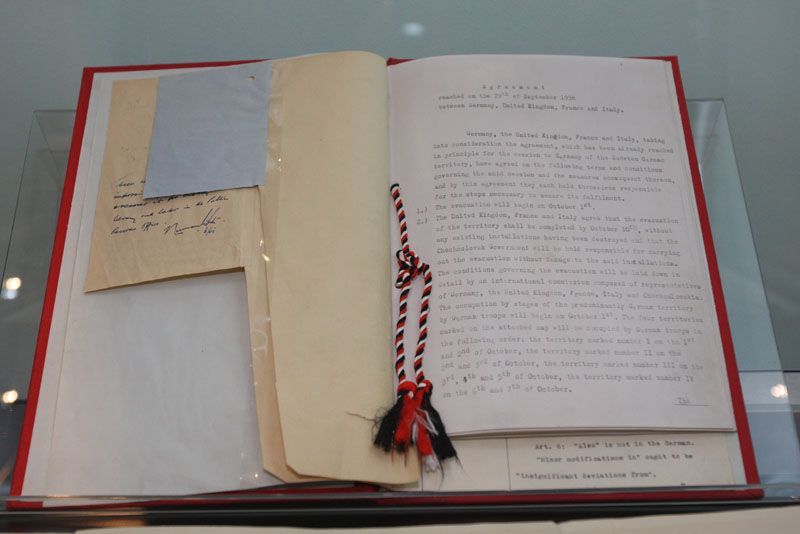 library and later in the Public
Records Office.
Agreement
reached on the 29th of September 1938
between Germany, United Kingdom, France and Italy.
Germany, the United Kingdom, France and Italy, taking
into consideration the agreement, which has been already reached
in principle for the cession to Germany of the Sudeten German
territory, have agreed on the following terms and conditions
governing the said cession and the measures consequent thereon,
and by this agreement they each hold themselves responsible
for the steps necessary to secure its fulfilment.
1.) The evacuation will begin on October 1st.
2.) The United Kingdom, France and Italy agree that the evacuation
of the territory shall be completed by October 10th, without
any existing installations having been destroyed and that the
Czechoslovak Government will be held responsible for carrying
out the evacuation without damage to the said installations.
The conditions governing the evacuation will be laid down in
detail by an international commission composed of representatives
of Germany, the United Kingdom, France, Italy and Czechoslovakia.
The occupation by stages of the predominantly German territory
by German troops will begin on October 1st. The four territories
marked on the attached map will be occupied by German troops in
the following order: the territory marked number I on the 1st
and 2nd of October, the territory marked number II on the
2nd and 3rd of October, the territory marked number III on the
3rd, 4th and 5th of October, the territory marked number IV
on the 6th and 7th of October.
The
Art. 6: "Also" is not in the German.
"Minor modifications in" ought to be
"insignificant deviations from".